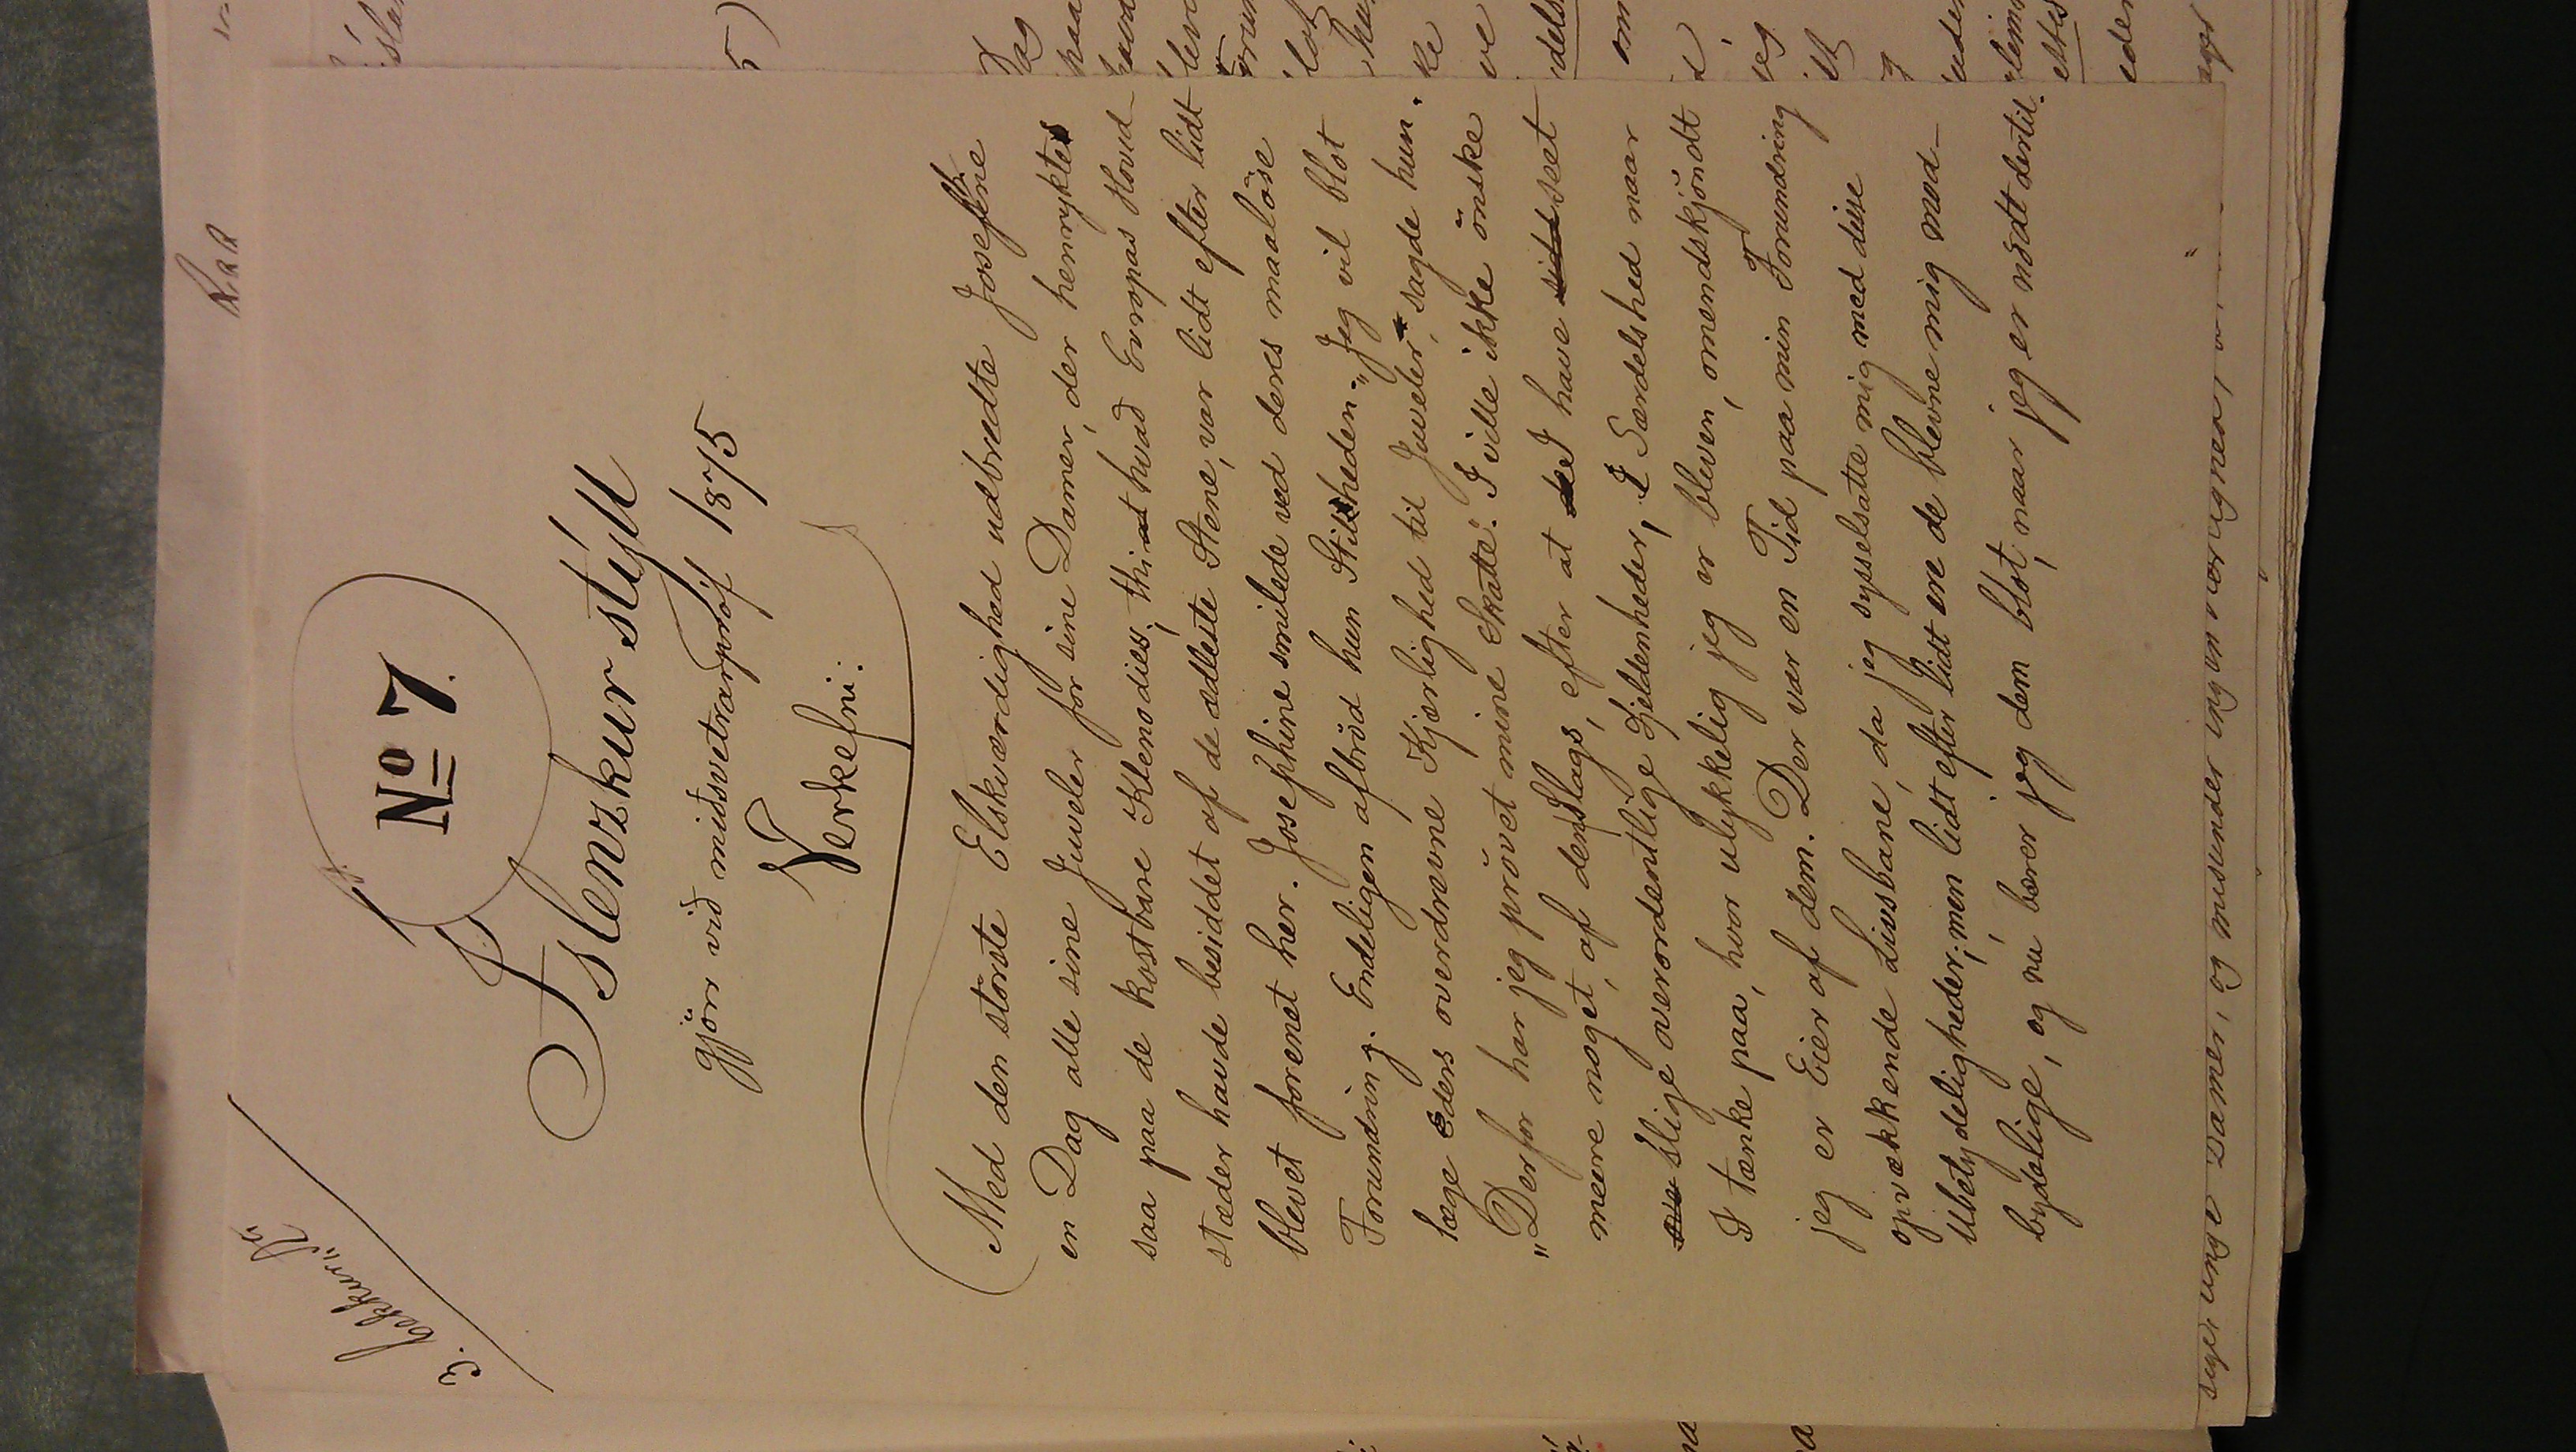 3. bekkur
No 7.
Íslenzkur stýll
gjörr við miðsvetrarpróf 1875
Verkefni:
Med den störste Elskværdighed udbredte Josefine
en Dag alle sine Juveler for sine Damer, der henryktes
saa paa de kostbare Klenodier; thi at hvad Evropas Hoved-
stæder havde besiddet af de ædleste Stene, var lidt efter lidt
blevet forenet her. Josephine smilede ved deres maalöse
Forundring. Endeligen afbröd hun Stilheden. „Jeg vil blot
læge Eders overdrevne Kjærlighed til Juveler“, sagde hun.
„Derfor har jeg prövet mine Skatte“. I ville ikke önske
meere noget af denslags, efter at de I have sidd seet
slige overordentlige Sjeldenheder, I Særdelshed naar
I tænke paa, hvor ulykkelig jeg er bleven, omendskjöndt
jeg er Eier af dem. Der var en Tid paa min Forundring
opvækkende Livsbane, da jeg sysselsatte mig med disse
Ubetydeligheder; men lidt efter lidt ere de blevne mig mod-
bydelige, og nú bærer jeg dem blot, naar jeg er nödt dertil.